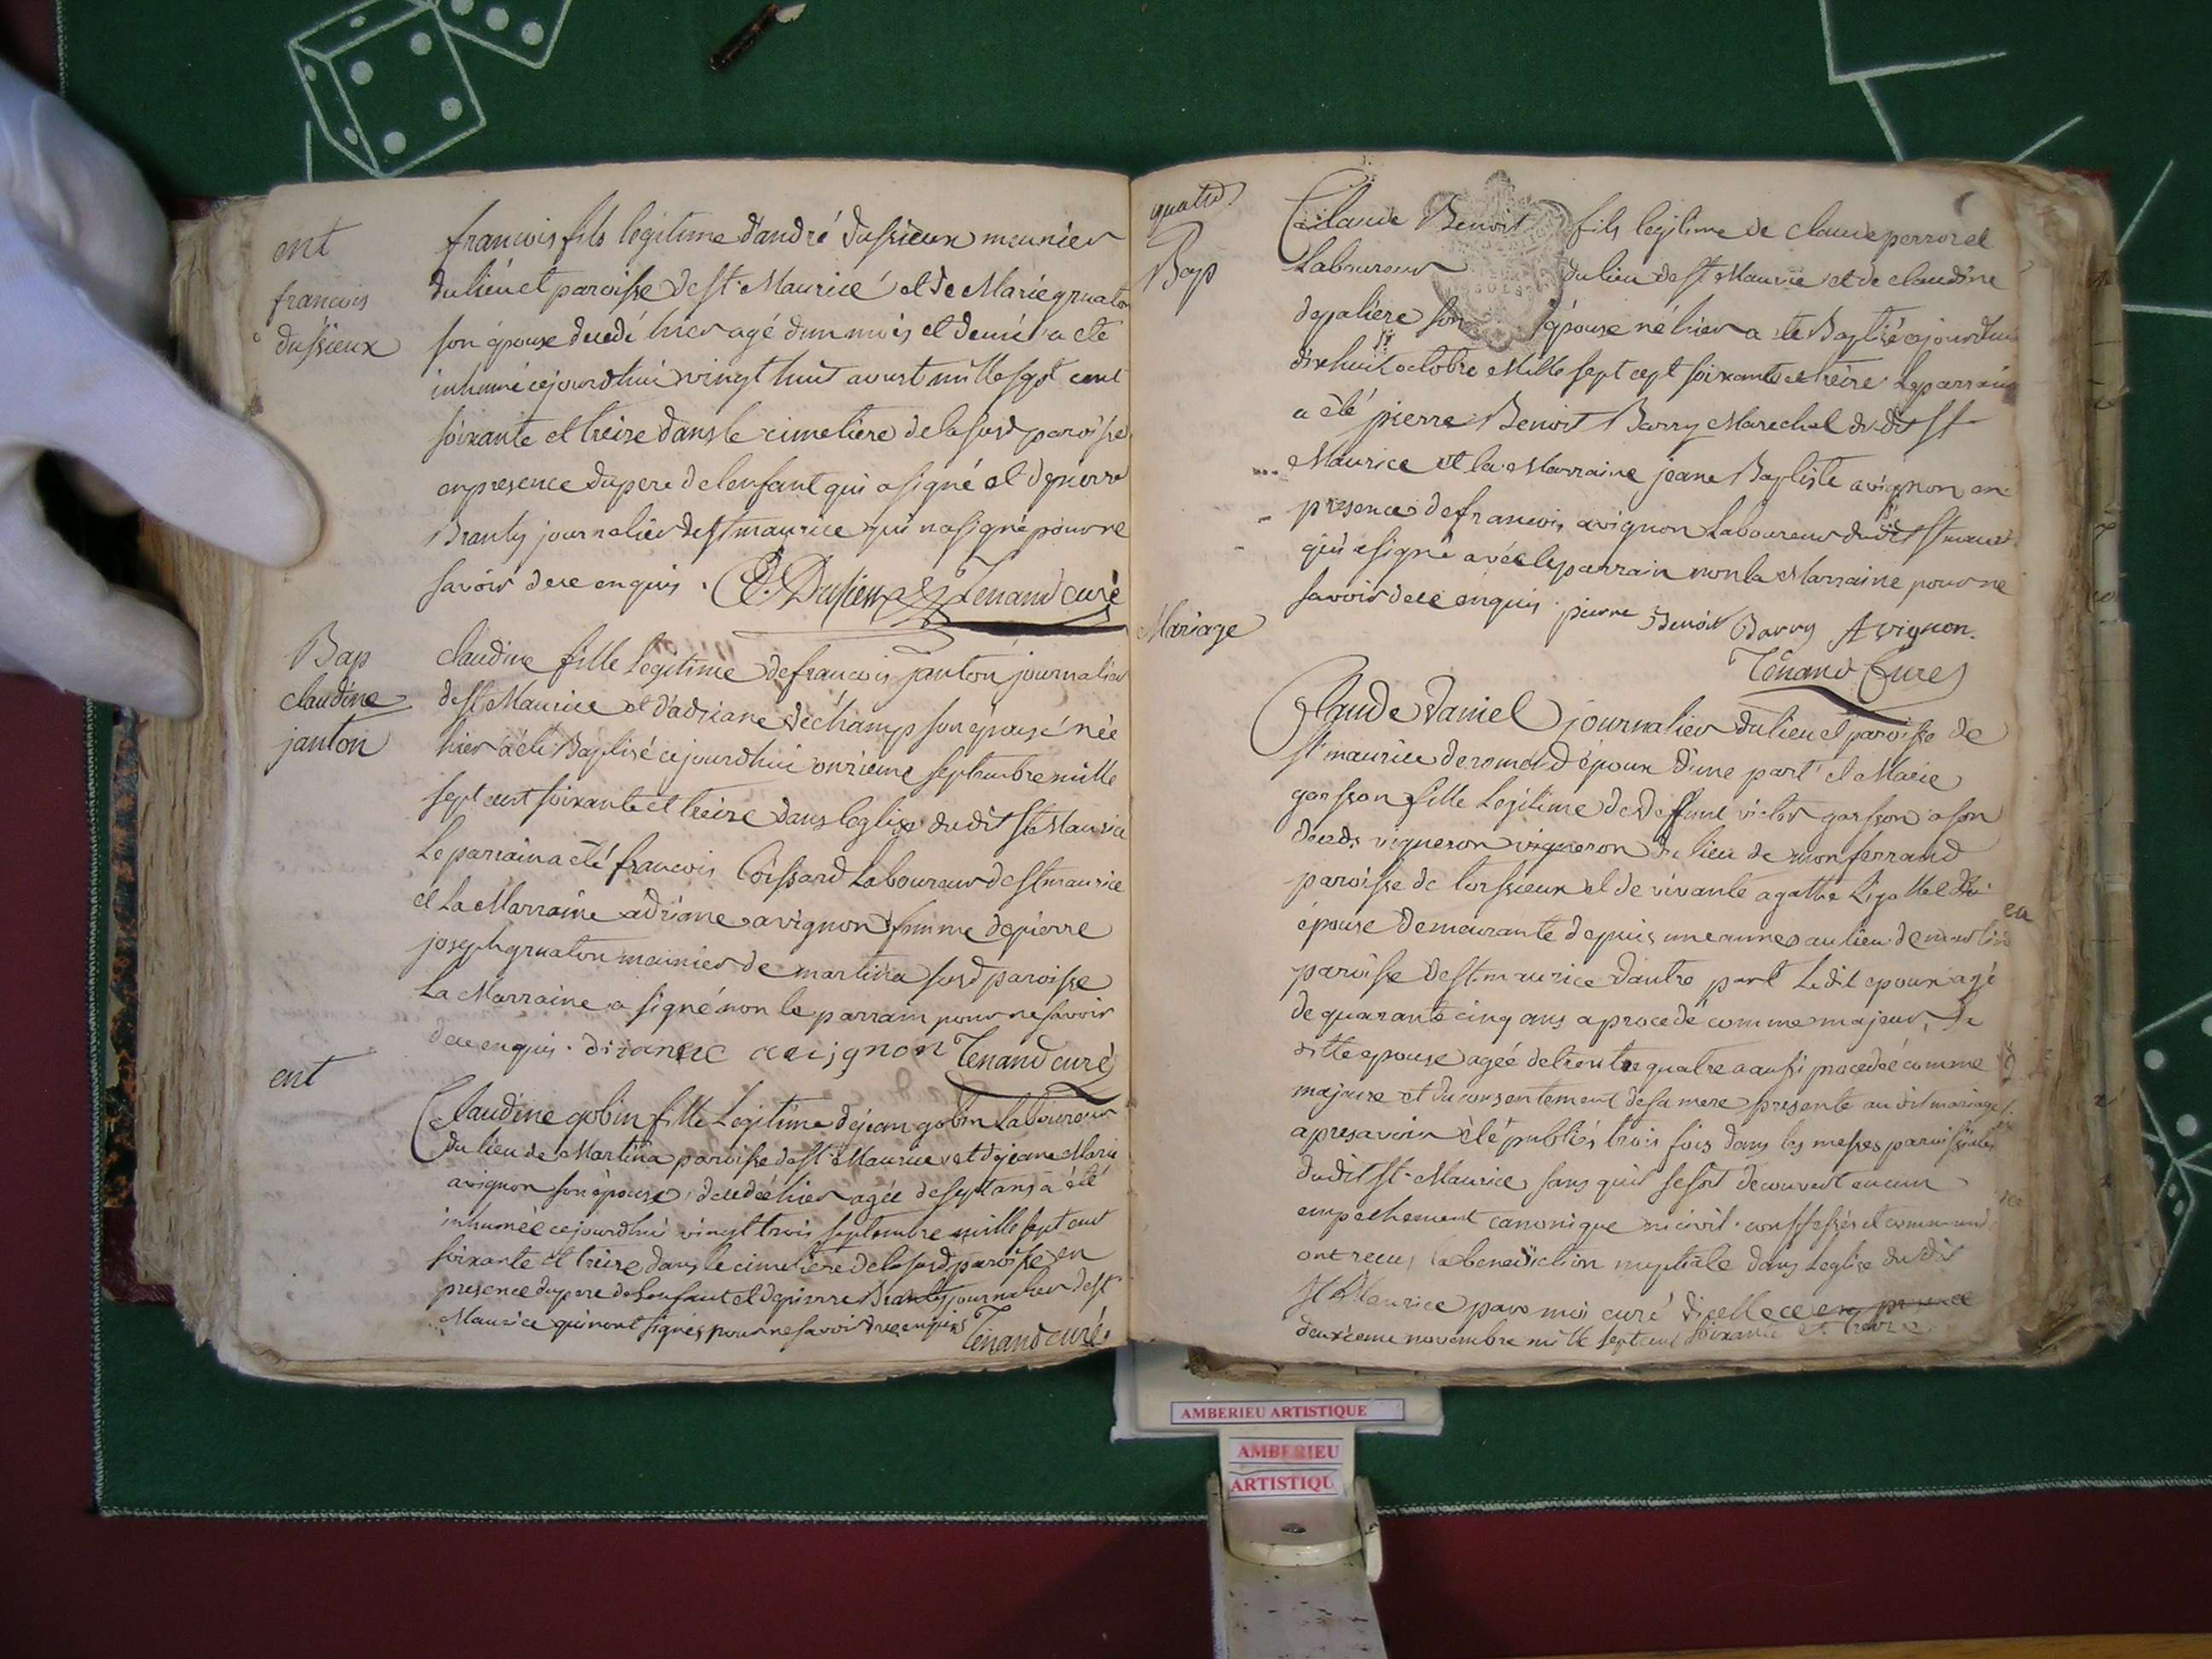 ent
francois
dussieux
francois fils légitime d'andré dussieux meunier
du lieu et paroisse de st Maurice et de Marie gruaton
son épouse decedé hier agé d'un mois et demi a eté
inhumé cejourdhui vingt huit aoust mille sept cent
soixante et treize dans le cimetiere de la susd paroisse
en presence du pere de l'enfant qui a signé et de pierre
Branly journalier de st maurice qui n'a signé pour ne
savoir de ce enquis. Dussieux Tenand curé
Bap
claudine
janton
claudine fille legitime de francois janton journalier
de st Maurice et d'adriane dechamp son épouse née
hier a eté Baptisé cejourdhui onzieme septembre mille
sept cent soixante et treize dans l'eglise dudit st Maurice
Le parrain a eté francois Coissard Laboureur de st maurice
et La Marraine adriane avignon femme de pierre
joseph gruaton meunier de martina susd paroisse
La Marraine a signé non le parrain pour ne savoir
de ce enquis. avignon Tenand curé
ent
Claudine gobin fille Legitime de jean gobin Laboureur
du lieu de Martina paroisse de st Maurice et de jeane Marie
avignon son épouse decedée hier agée de sept ans a été
inhumée cejourdhui vingt trois septembre mille sept cent
soixante et treize dans le cimetiere de la susd paroisse en
presence du pere de L'enfant et de pierre Branly journalier de st
Maurice qui n'ont signés pour ne savoir de ce enquis Tenand curé.
quatre
Bap
Claude Benoit fils legitime de claude perroset
Laboureur du lieu de st Maurice et de claudine
depaliere son épouse né hier a ete Baptisé cejourdhui
dixhuit octobre Mille sept cent soixante et treize. Le parrain
a été pierre Benoit Barry Marechal dudit st
Maurice et la Marraine jeane Baptiste avignon en
presence de francois avignon Laboureur dudit st
qui a signé avec le parrain non la Marraine pour ne
savoir de ce enquis. pierre Benoit Barry Avignon.
Tenand Curé
Mariage
Claude Daniel journalier du lieu et paroisse de
st maurice de d'époux d'une part et Marie
garsson fille Legitime de deffunt victor garsson a son
deceds vigneron vigneron du lieu de monferrand
paroisse de et de vivante agathe
épouse Demeurante depuis une année au lieu de
paroisse de st maurice d'autre part Ledit epoux agé
de quarante cinq ans a procedé comme majeur, La
ditte epouse agée de trente quatre a aussi procedée comme
majeure et du consentement de sa mere presente au dit mariage
apres avoir été publiés trois fois dans les messes paroissiales
dudit st Maurice sans qu'il se soit decouvert aucun
empechement canonique ni civil. confessés et
ont recus la benediction nuptiale dans l'eglise dudit
st Maurice par moi curé d'icelle ce
deuxieme novembre mille sept cent soixante et treize
AMBERIEU ARTISTIQUE
AMBERIEU
ARTISTIQU